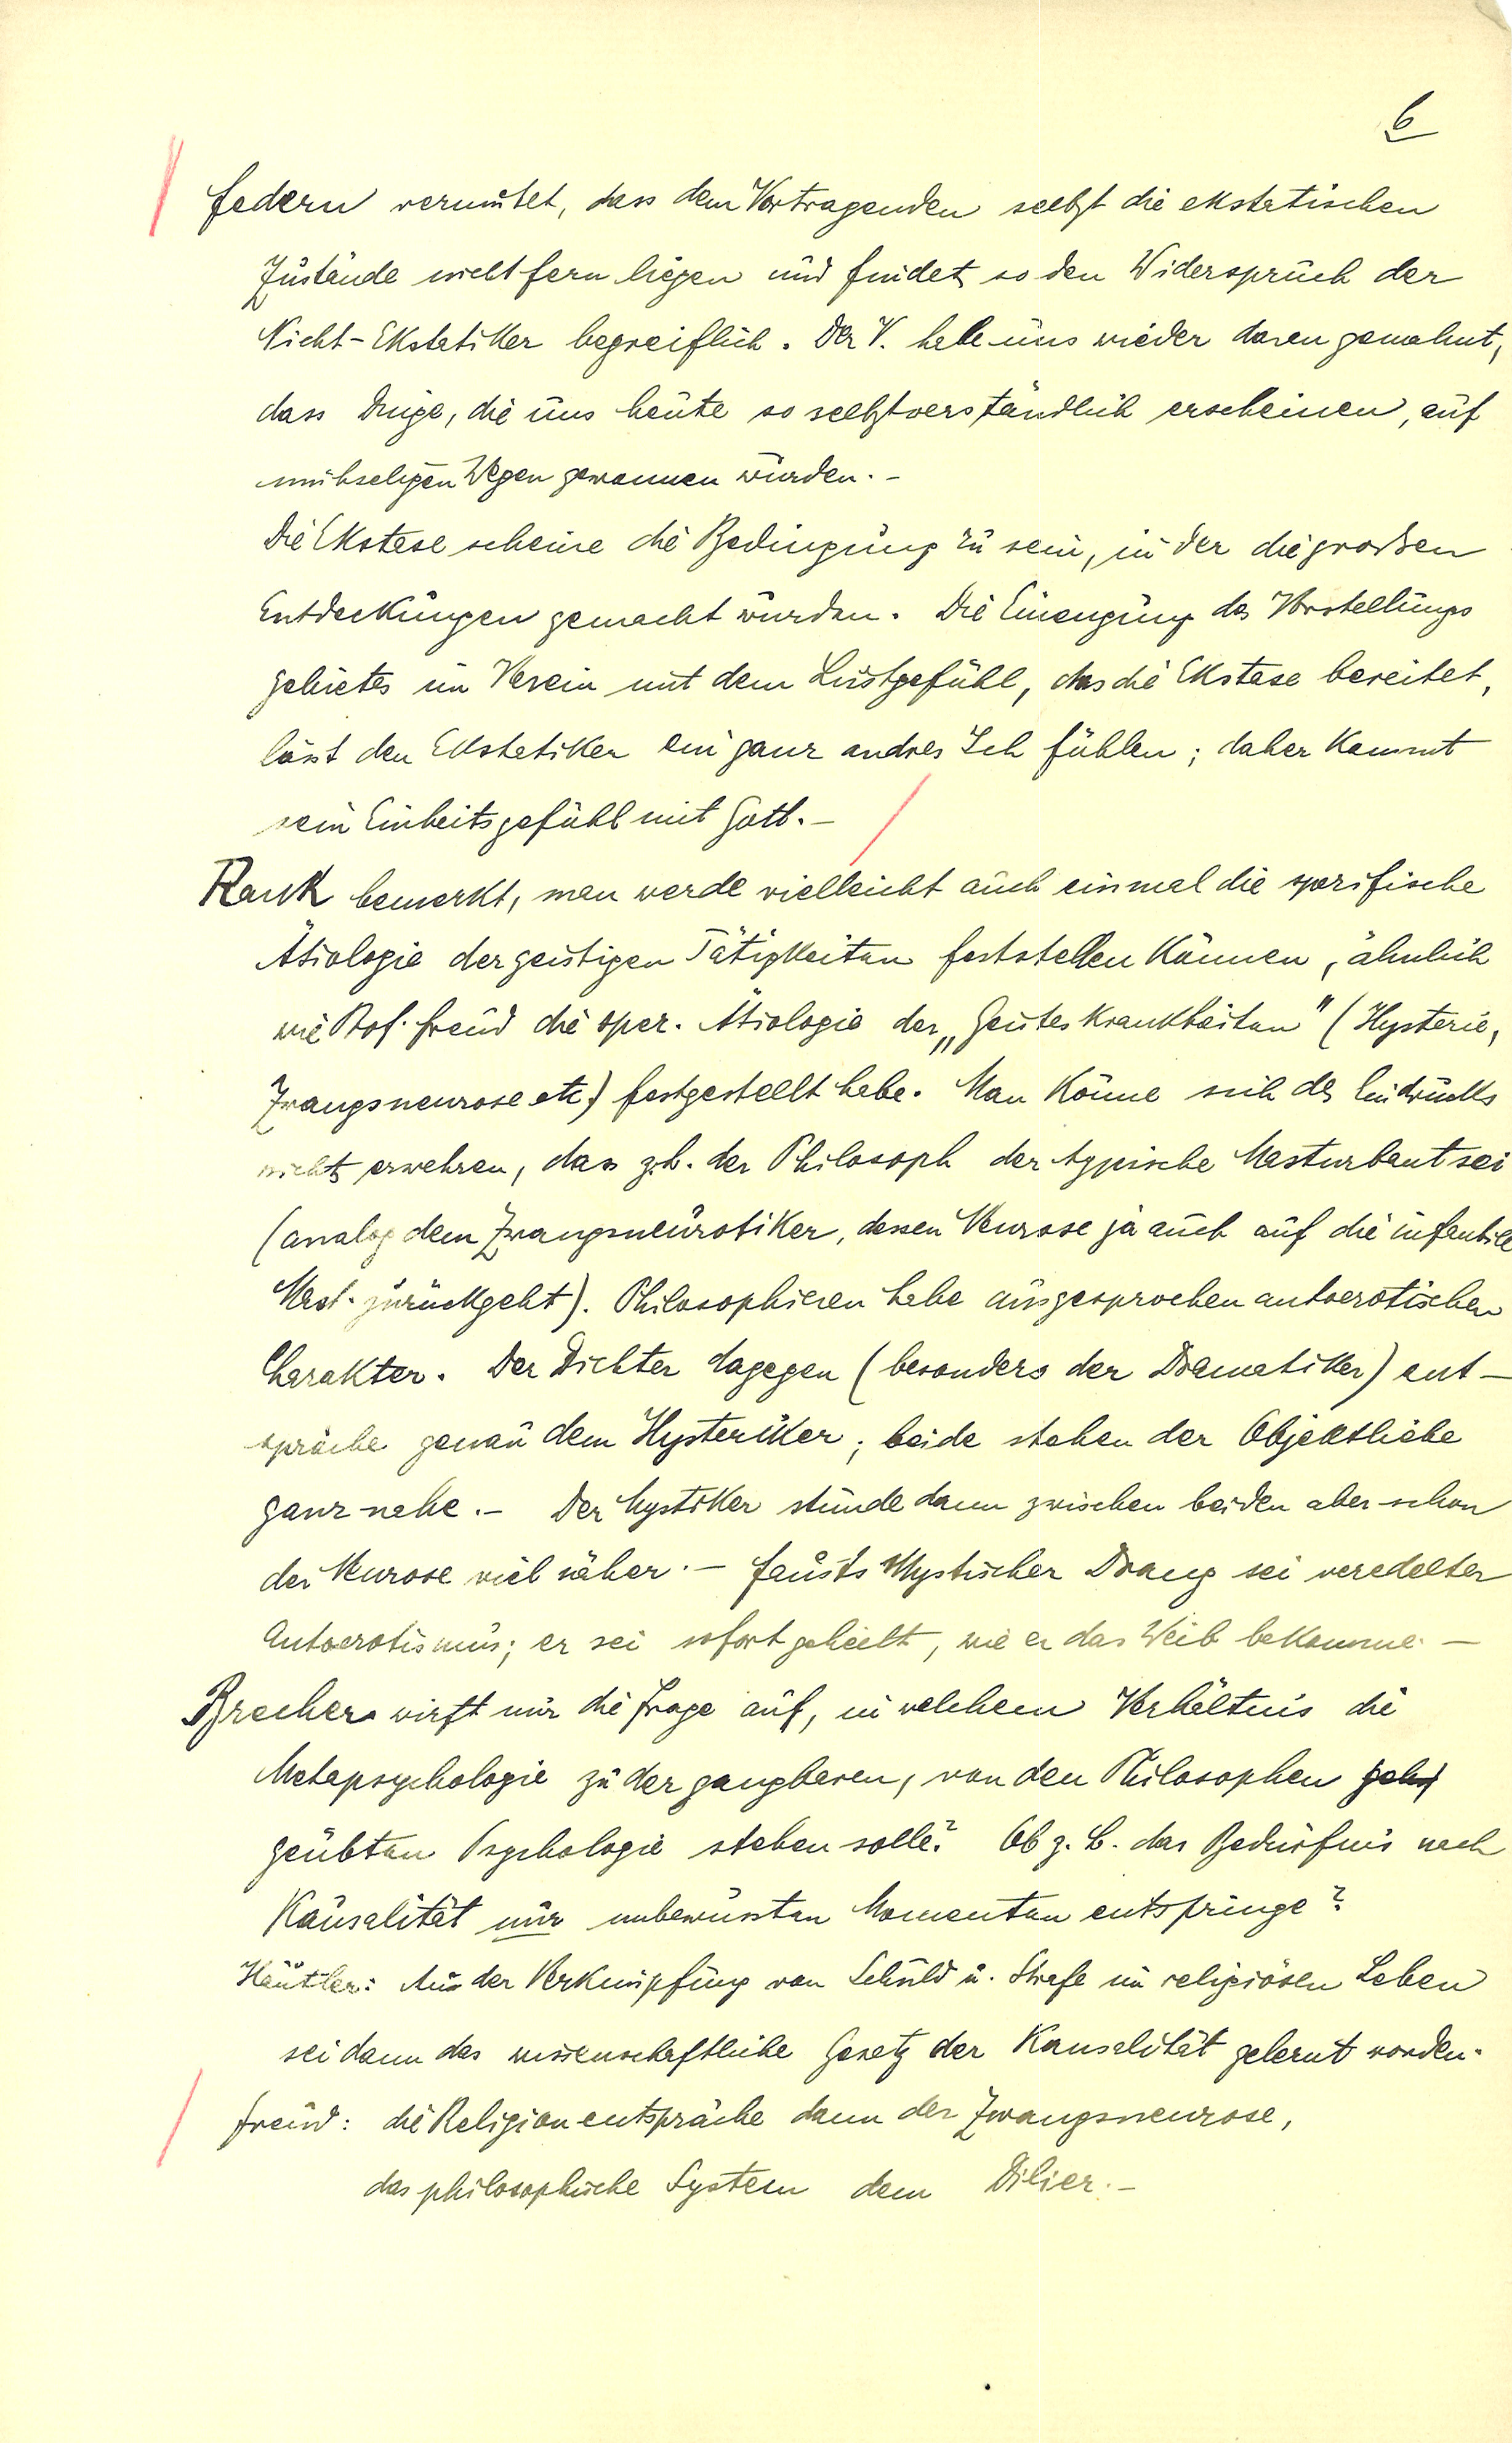 6
Federn vermutet, dass dem Vortragenden selbst die ekstatischen
Zustände nicht fern liegen und findet so den Widerspruch der
Nicht-Ekstatiker begreiflich. Der V. habe uns wieder daran gemahnt,
dass Dinge, die uns heute so selbstverständlich erscheinen, auf
mühseligen Wegen gewonnen wurden. –
Die Ekstase scheine die Bedingung zu sein, in der die großen
Entdeckungen gemacht wurden. Die Einengung des Vorstellungs
gebietes im Verein mit dem Lustgefühl, das die Ekstase bereitet,
lässt den Ekstatiker ein ganz andres Ich fühlen; daher kommt
sein Einheitsgefühl mit Gott. –
Rank bemerkt, man werde vielleicht auch einmal die spezifische
Ätiologie der geistigen Tätigkeiten feststellen können, ähnlich
wie Prof. Freud die spez. Ätiologie der „Geisteskrankheiten" (Hysterie,
Zwangsneurose etc) festgestellt habe. Man könne sich des Eindrucks
nicht erwehren, dass z.b. der Philosoph der typische Masturbant sei
(analog dem Zwangsneurotiker, dessen Neurose ja auch auf die infantile
Mast. zurückgeht). Philosophieren habe ausgesprochen autoerotischen
Charakter. Der Dichter dagegen (besonders der Dramatiker) ent-
spräche genau dem Hysteriker; beide stehen der Objektliebe
ganz nahe. – Der Mystiker stünde dann zwischen beiden aber schon
der Neurose viel näher. – Fausts Mystischer Drang sei veredelter
Autoerotismus; er sei sofort geheilt, wie er das Weib bekomme. –
Brecher wirft nur die Frage auf, in welchem Verhältnis die
Metapsychologie zu der gangbaren, von den Philosophen
geübten Psychologie stehen solle? Ob z. B. das Bedürfnis nach
Kausalität nur unbewussten Momenten entspringe?
Häutler: Aus der Verknüpfung von Schuld u. Strafe im religiösen Leben
sei dann das wissenschaftliche Gesetz der Kausalität gelernt worden.
Freud: die Religion entspräche dann der Zwangsneurose,
das philosophische System dem Dilier. –